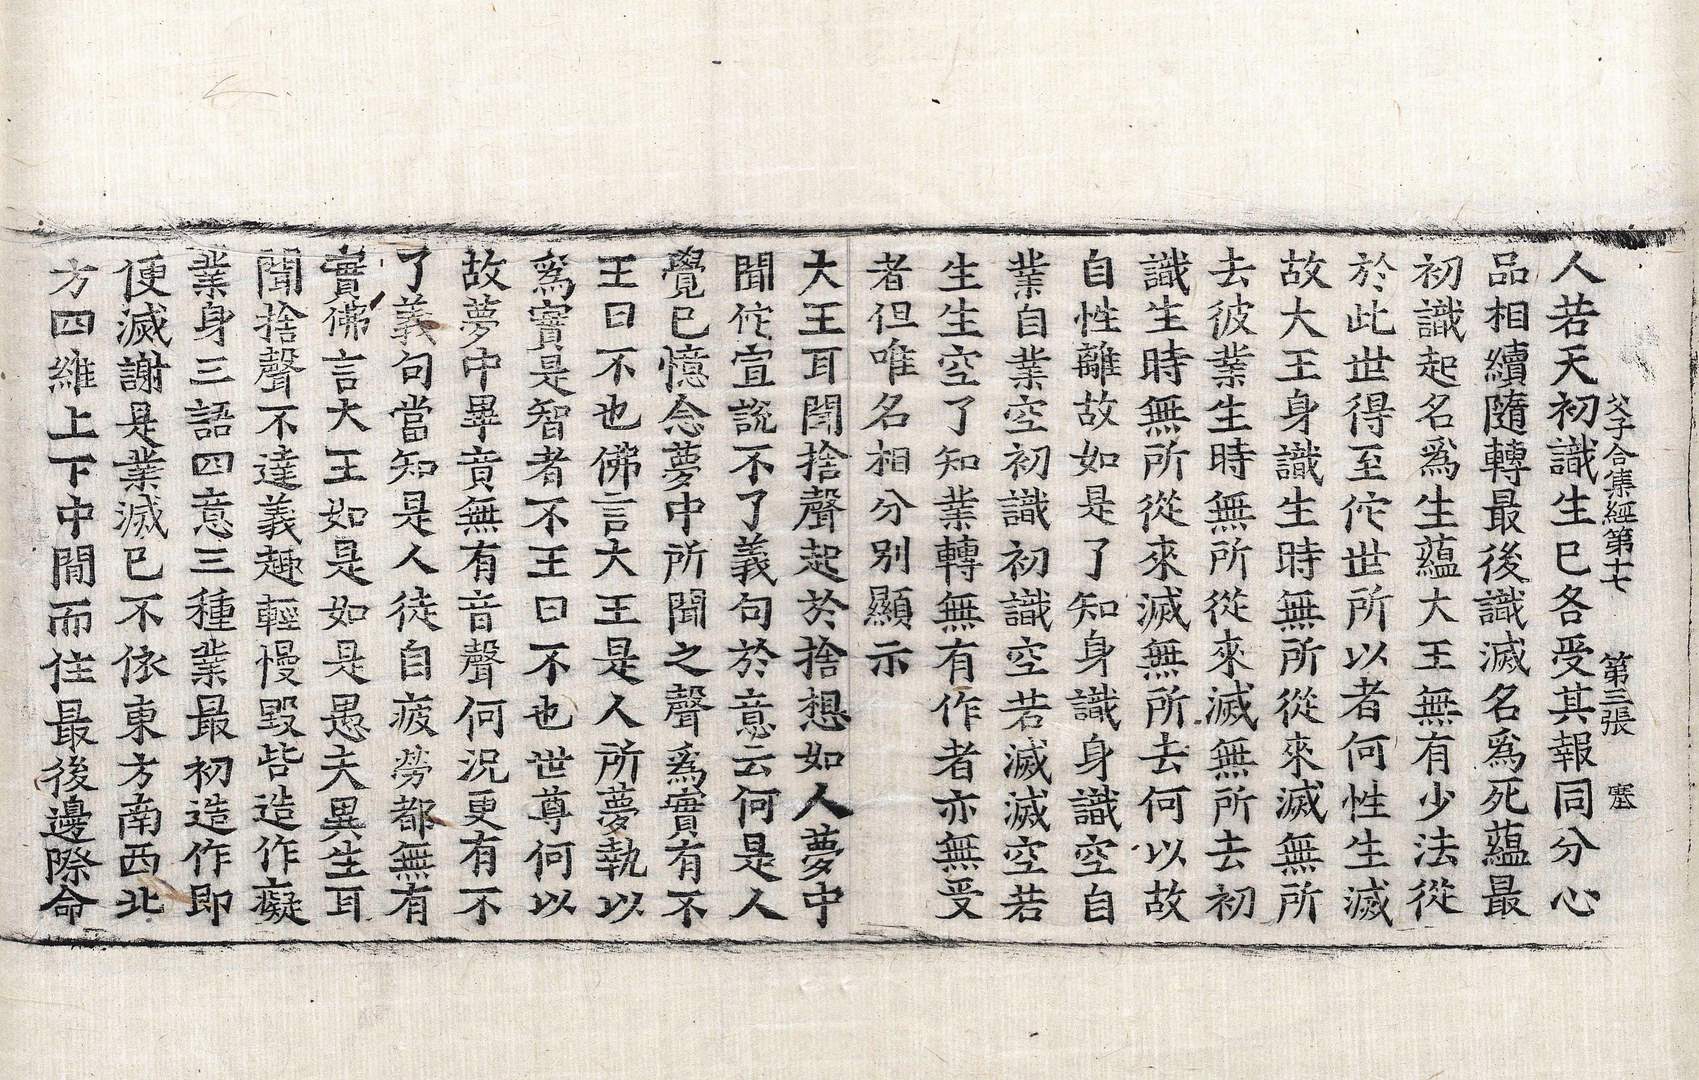 父子合集經第十七　第三張
人若天初識生已各受其報同分心
品相續隨轉最後識滅名爲死蘊最
初識起名爲生蘊大王無有少法從
於此世得至佗世所以者何性生滅
故大王身識生時無所從來滅無所
去彼業生時無所從來滅無所去初
識生時無所從來滅無所去何以故
自性離故如是了知身識身識空自
業自業空初識初識空若滅滅空若
生生空了知業轉無有作者亦無受
者但唯名相分別顯示
大王耳聞捨聲起於捨想如人夢中
聞佗宣說不了義句於意云何是人
覺已憶念夢中所聞之聲爲實有不
王曰不也佛言大王是人所夢執以
爲實是智者不王曰不也世尊何以
故夢中畢竟無有音聲何況更有不
了義句當知是人徒自疲勞都無有
實佛言大王如是如是愚夫異生耳
聞捨聲不達義趣輕慢毀呰造作癡
業身三語四意三種業最初造作即
便滅謝是業滅已不依東方南西北
方四維上下中間而住最後邊際命